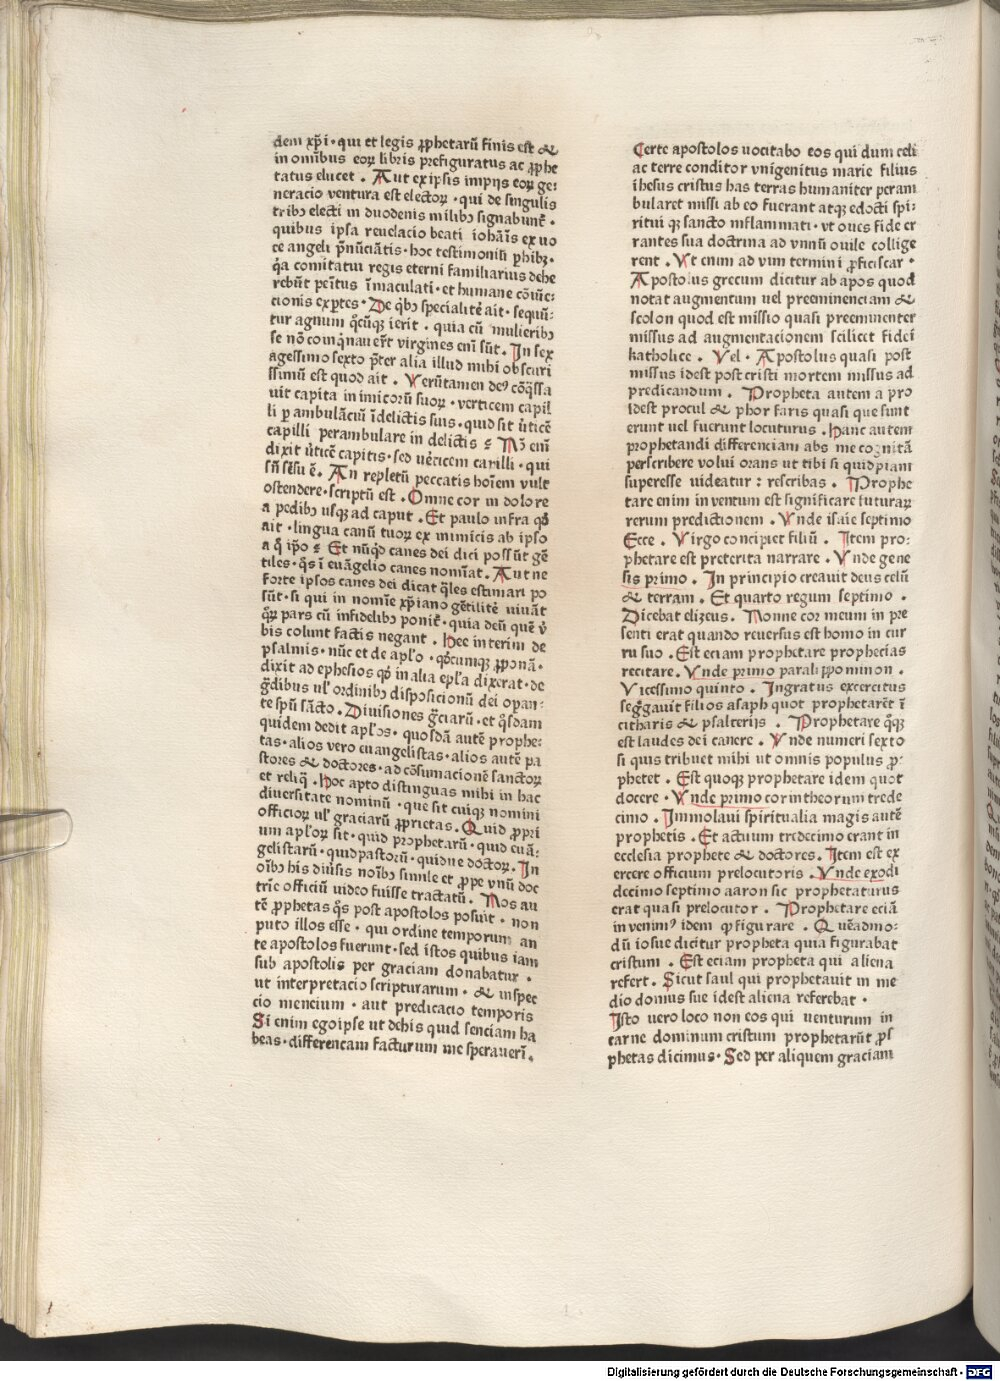 dem xp̄i · qui et legis ꝓphetarū finis est &
in omībus eoꝝ libris prefiguratus ac ꝓphe
tatus elucet . Aut ex ipsis impijs eoꝝ ge⸗
neracio ventura est electoꝝ · qui de singulis
tribꝰ electi in duodenis milibꝰ signabunt̄ ·
quibus ipsa reuelacio beati iohāīs ex uo
ce angeli p̄nūciātis · hoc testimoniū phibꝫ ·
q̄a comitatui regis eterni familiarius dehe
rebūt peītus īmaculati · et humane cōuīc⸗
tionis exp̄tes · De qb̓ꝫ specialitē ait · sequū⸗
tur agnum q̄cūqꝫ ierit · quia cū mulieribꝫ
se nō comq̄nauert̄ virgines enī sūt . In sex
agessimo sexto p̄ter alia illud mihi obscuri
ssimū est quod ait . Verūtamen deꝰ cōq̄ssa
uit capita inimicorū suoꝝ · verticem capil
li ꝑ ambulāciū īdelictis suis · quid sit ūticē
capilli perambulare in delictis ⸗ Nō enī
dixit ūticē capitis · sed uerticem capilli · qui
sn̄ sēsu ē . An repletū peccatis hoīem vult
ostendere · scriptū est . Omne cor in dolore
a pedibꝰ usqꝫ ad caput . Et paulo infra qđ
ait · lingua canū tuoꝝ ex inimicis ab ipso
a q̄ ip̄o ⸗ Et nūqđ canes dei dici possūt gē
tiles · q̄s ī euāgelio canes nomīat . Aut ne
forte ipsos canes dei dicat q̄les estimari po
sūt · si qui in nomīe xp̄iano gētilitē uiuāt
qꝝ pars cū infidelibꝫ ponit̄ · quia deū quē ꝟ
bis colunt factis negant . Hec interim de
psalmis · nūc et de apl̄o . qđcumqꝫ ꝓponā .
dixit ad ephesios qđ in alia epl̄a dixerat · de
gr̄dibus ul̓ ordinibꝫ disposicionū dei opan⸗
te spū sācto . Diuisiones gr̄ciarū · et q̄sdam
quidem dedit apl̄os · quosdā autē prophe⸗
tas · alios vero euangelistas · alios autē pa
stores & doctores · ad cōsumacionē sanctoꝝ
et reliq̄ . Hoc apto distinguas mihi in hac
diuersitate nominū · que sit cuiqꝫ nomini
officioꝝ ul̓ graciarū ꝓprietas . Quid ꝓpri
um apl̄oꝝ sit · quid prophetarū · quid euā⸗
gelistarū · quid pastorū · quidue doctoꝝ . In
oībꝰ his diūsis noībꝫ simile et ꝓpe vnū doc
trīe officiū uideo fuisse tractatū . Nos au
tē ꝓphetas q̄s post apostolos posuit · non
puto illos esse · qui ordine temporum an
te apostolos fuerunt · sed istos quibus iam
sub apostolis per graciam donabatur ·
ut interpretacio scripturarum · & inspec
cio mencium · aut predicacio temporis
Si enim ego ipse ut debis quid senciam ha
beas · differencam facturum me sperauerī .
Certe apostolos uocitabo eos qui dum celi
ac terre conditor vnigenitus marie filius
ihesus cristus has terras humaniter peram
bularet missi ab eo fuerant atqꝫ edocti spi⸗
ritui qꝫ sancto inflammati · vt oues fide er
rantes sua doctrina ad vnnū ouile collige
rent . Vt enim ad vim termini ꝓficiscar ·
Apostolus grecum dicitur ab apos quod
notat augmentum uel preeminenciam &
scolon quod est missio quasi preeminenter
missus ad augmentacionem scilicet fidei
katholice . Vel · Apostolus quasi post
missus idest post cristi mortem missus ad
predicandum . Propheta autem a pro
idest procul & phor faris quasi que sunt
erunt uel fuerunt locuturus . Hanc autem
prophetandi differenciam abs me cognitā
perscribere volui orans ut tibi si quidpiam
superesse uideatur : rescribas . Prophe
tare enim inventum est significare futuraꝝ
rerum predictionem . Vnde isaie septimo
Ecce . Virgo concipiet filiū . Item pro⸗
phetare est preterita narrare . Vnde gene
sis primo . In principio creauit deus celū
& terram . Et quarto regum septimo .
Dicebat elizeus . Nonne cor meum in pre
senti erat quando reuersus est homo in cur
ru suo . Est eciam prophetare prophecias
recitare . Vnde primo parali ꝓpominon .
Vicessimo quinto . Ingratus excercitus
segḡauit filios asaph quot prophetarēt ī
citharis & psalterijs . Prophetare q̄qꝫ
est laudes dei canere . Vnde numeri sexto
si quis tribuet mihi ut omnis populus ꝓ⸗
phetet . Est quoqꝫ prophetare idem quot
docere . Vnde primo corintheorum trede
cimo . Immolaui spiritualia magis autē
prophetis . Et actuum tredecimo erant in
ecclesia prophete & doctores . Item est ex
ercere officium prelocutoris . Vnde exodi
decimo septimo aaron sic prophetaturus
erat quasi prelocutor . Prophetare eciā
invenimꝰ idem qđ figurare . Quēadmo⸗
dū iosue dicitur propheta quia figurabat
cristum . Est eciam propheta qui aliena
refert . Sicut saul qui prophetauit in me
dio domus sue idest aliena referebat .
Isto uero loco non eos qui uenturum in
carne dominum cristum prophetarūt ꝓſ
phetas dicimus . Sed per aliquem graciam
Digitalisierung gefördert durch die Deutsche Forschungsgemeinschaft - DFG